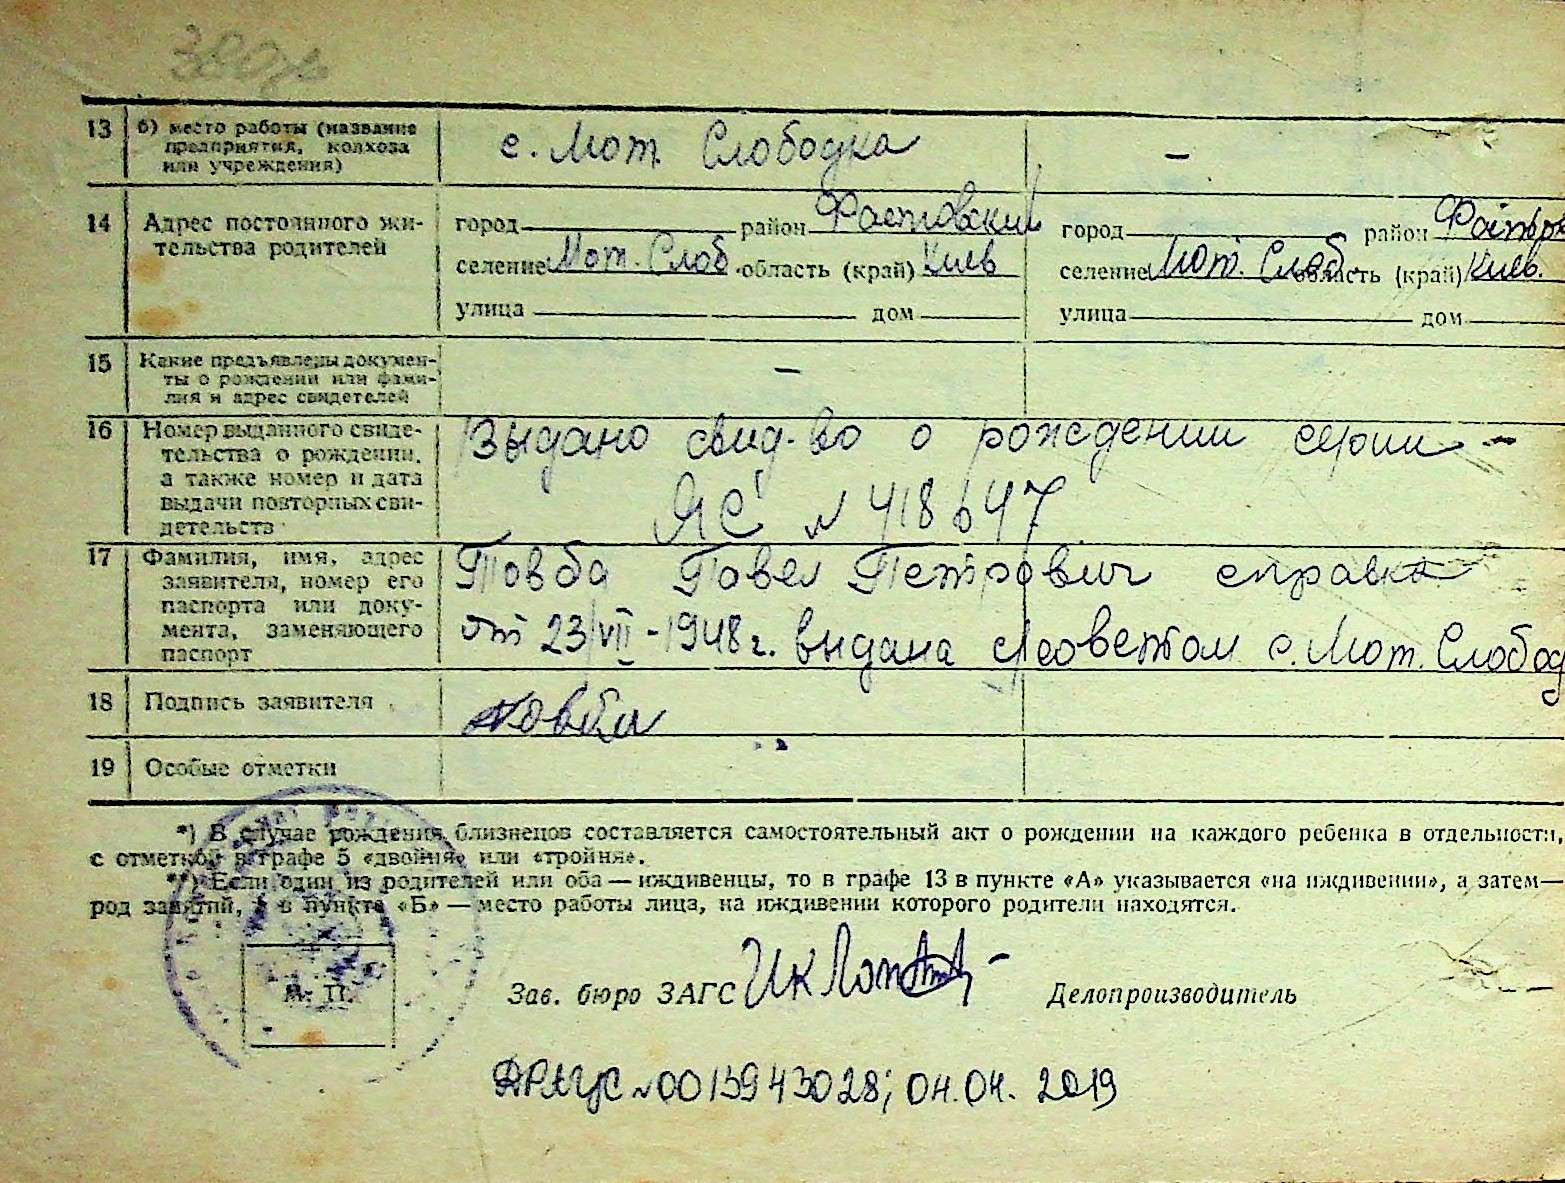 13 б) место работы (название предприятия, колхоза или учреждения) с. Мот. Слободка —
14 Адрес постоянного жительства родителей
город район Фастовский город район
селение Мот. Слоб. область (край) Киев селение Мот. Слоб. область (край) Киев.
улица дом улица дом
15 Какие предъявлены документы о рождении или фамилия и адрес свидетелей —
16 Номер выданного свидетельства о рождении, а также номер и дата выдачи повторных свидетельств
Выдано свид-во о рождении серии -
ЯС № 418647
17 Фамилия, имя, адрес заявителя, номер его паспорта или документа, заменяющего паспорт
Товба Павел Петрович справка
от 23/VII - 1948 г. выдана с/советом с. Мот. Слобод
18 Подпись заявителя Товба
19 Особые отметки
*) В случае рождения близнецов составляется самостоятельный акт о рождении на каждого ребенка в отдельности,
с отметкой в графе 5 «двойня» или «тройня».
**) Если один из родителей или оба — иждивенцы, то в графе 13 в пункте «А» указывается «на иждивении», а затем—
род занятий, а в пункте «Б» — место работы лица, на иждивении которого родители находятся.
М. П.
Зав. бюро ЗАГС Делопроизводитель
ДРАЦС № 0013943028; 04.04. 2019